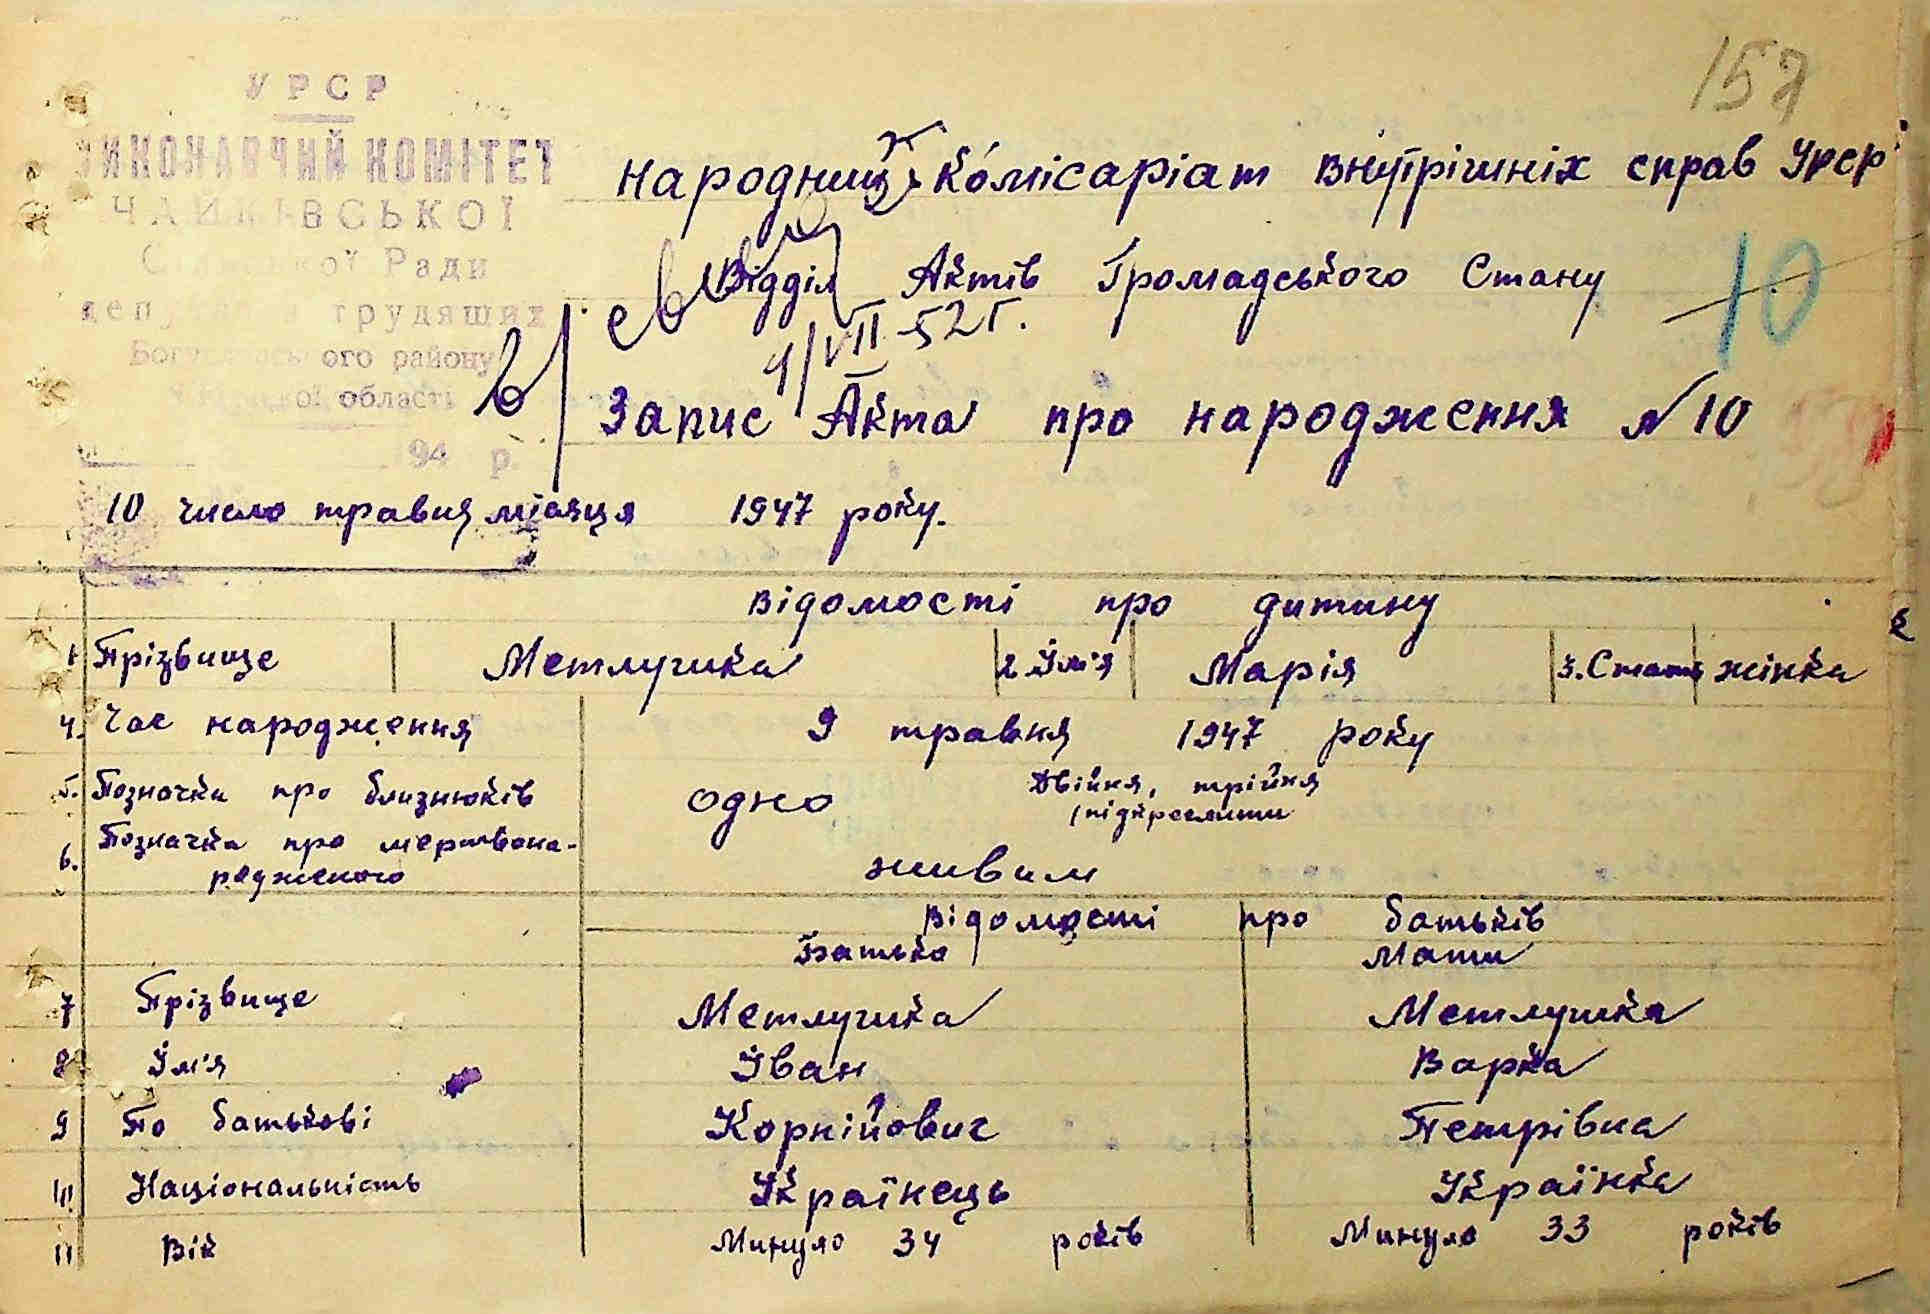 157
УРСР
ВИКОНАВЧИЙ КОМІТЕТ
ЧАЙКІВСЬКОЇ
Сільської Ради
депутатів трудящих
ого району
області
194 р.
Народний Комісаріат Внутрішніх справ Урср
Відділ Актів Громадського Стану
10
1/VII-52 г.
Запис Акта про народження №10
10 число травня місяця 1947 року.
Відомості про дитину
1 Прізвище Метлушка 2 Ім'я Марія 3. Стать жінка
4. Час народження 9 травня 1947 року
5. Позначка про близнюків одно Двійня, трійня
(підкреслити
6. Позначка про мертвона-
родженого живим
Відомості про батьків
Батько Мати
7 Прізвище Метлушка Метлушка
8 Ім'я Іван Варка
9 По батькові Корнійович Петрівна
10 Національність Українець Українка
11 Вік Минуло 34 років Минуло 33 років